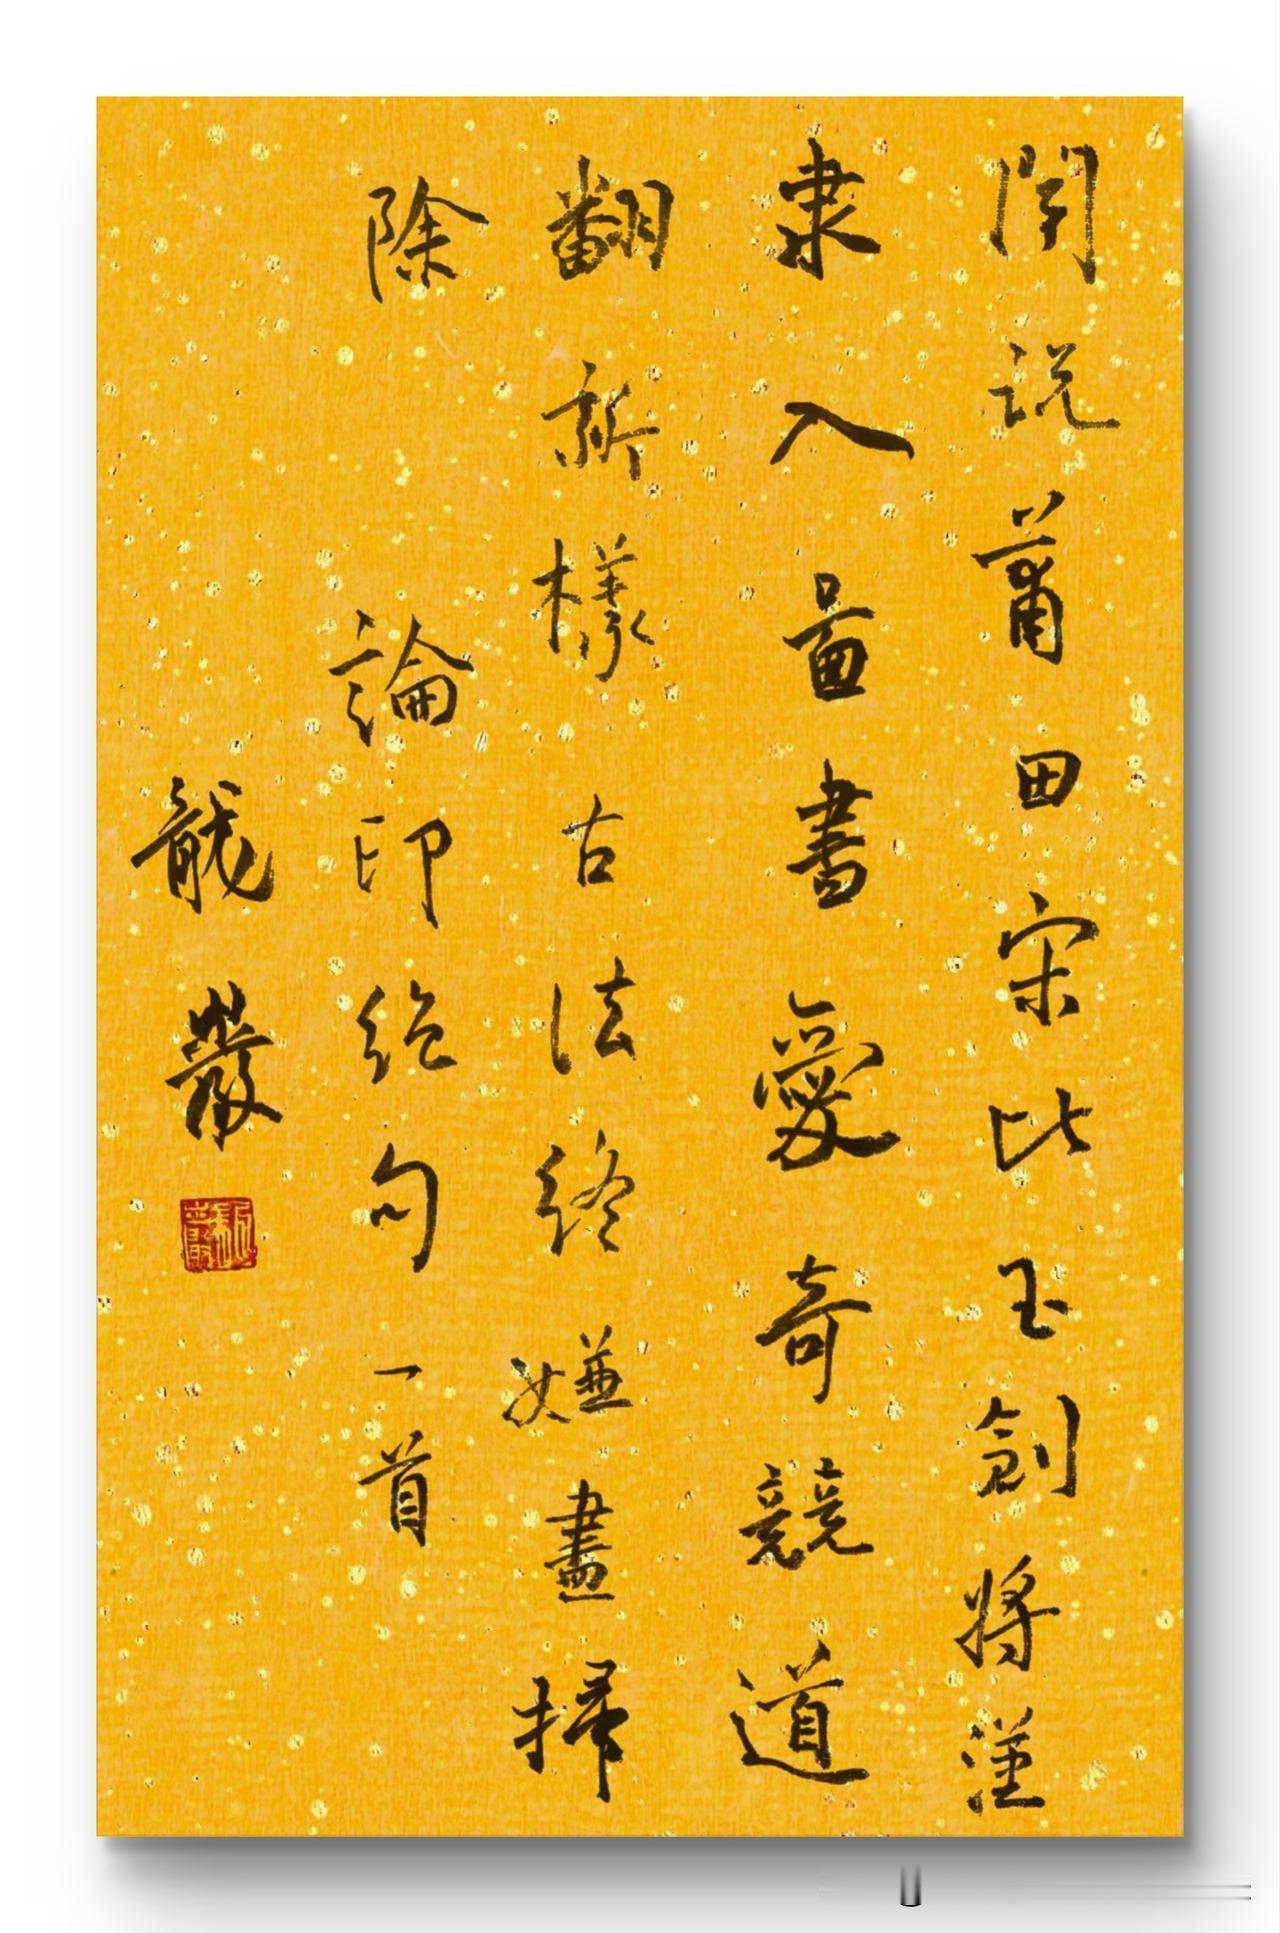 聞說莆田宋比玉創將漢
隶入啚書愛奇競道
翻新樣古法終嫌盡掃
除 論印絕句一首
龍